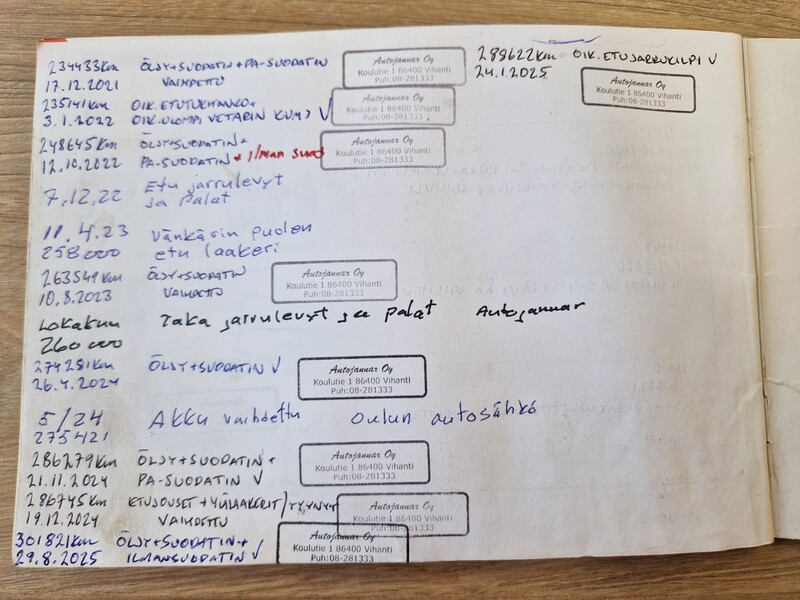 234433km ÖLJY+SUODATIN+PA-SUODATIN
17.12.2021 VAIHDETTU
Autojannar Oy
Koulutie 1 86400 Vihanti
Puh:08-281333
235141km OIK. ETUTUKIVARSI+
3.1.2022 OIK. ULOMPI VETARIN KUMI V
Autojannar Oy
Koulutie 1 86400 Vihanti
Puh:08-281333
248645km ÖLJY+SUODATIN+
12.10.2022 PA-SUODATIN + ilman suod
Autojannar Oy
Koulutie 1 86400 Vihanti
Puh:08-281333
7.12.22 Etu jarrulevyt
ja palat
11.4.23 Vänkärin puolen
258000 etu laakeri
263549km ÖLJY+SUODATIN
10.8.2023 VAIHDETTU
Autojannar Oy
Koulutie 1 86400 Vihanti
Puh:08-281333
Lokakuu Taka jarrulevyt ja palat Autojannar
260000
274281km ÖLJY+SUODATIN V
26.4.2024
Autojannar Oy
Koulutie 1 86400 Vihanti
Puh:08-281333
5/24 Akku vaihdettu Oulun autosähkö
275421
286279km ÖLJY+SUODATIN+
21.11.2024 PA-SUODATIN V
Autojannar Oy
Koulutie 1 86400 Vihanti
Puh:08-281333
286745km ETUJOUSET+YLÄLAAKERIT/TYYNYT
19.12.2024 VAIHDETTU
Autojannar Oy
Koulutie 1 86400 Vihanti
Puh:08-281333
301821km ÖLJY+SUODATIN+
29.8.2025 ILMANSUODATIN V
Autojannar Oy
Koulutie 1 86400 Vihanti
Puh:08-281333
288622km OIK. ETUJARRUKILPI V
24.1.2025
Autojannar Oy
Koulutie 1 86400 Vihanti
Puh:08-281333